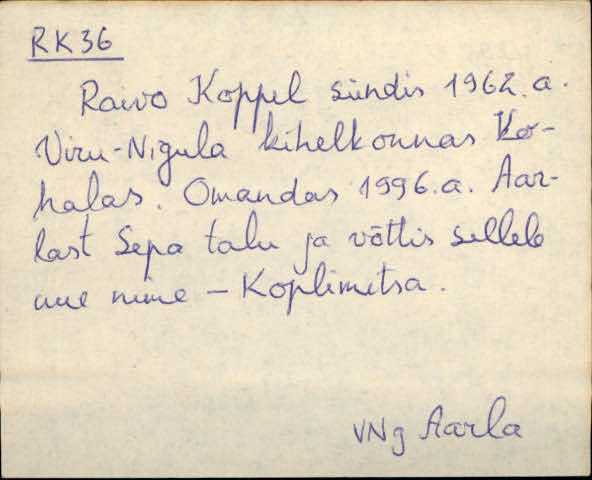 RK36
Raivo Koppel sündis 1962.a.
Viru-Nigula kihelkonnas Ko-
halas. Omandas 1996.a. Aar-
last Sepa talu ja võttis sellele
uue nime – Koplimetsa.
VNg Aarla